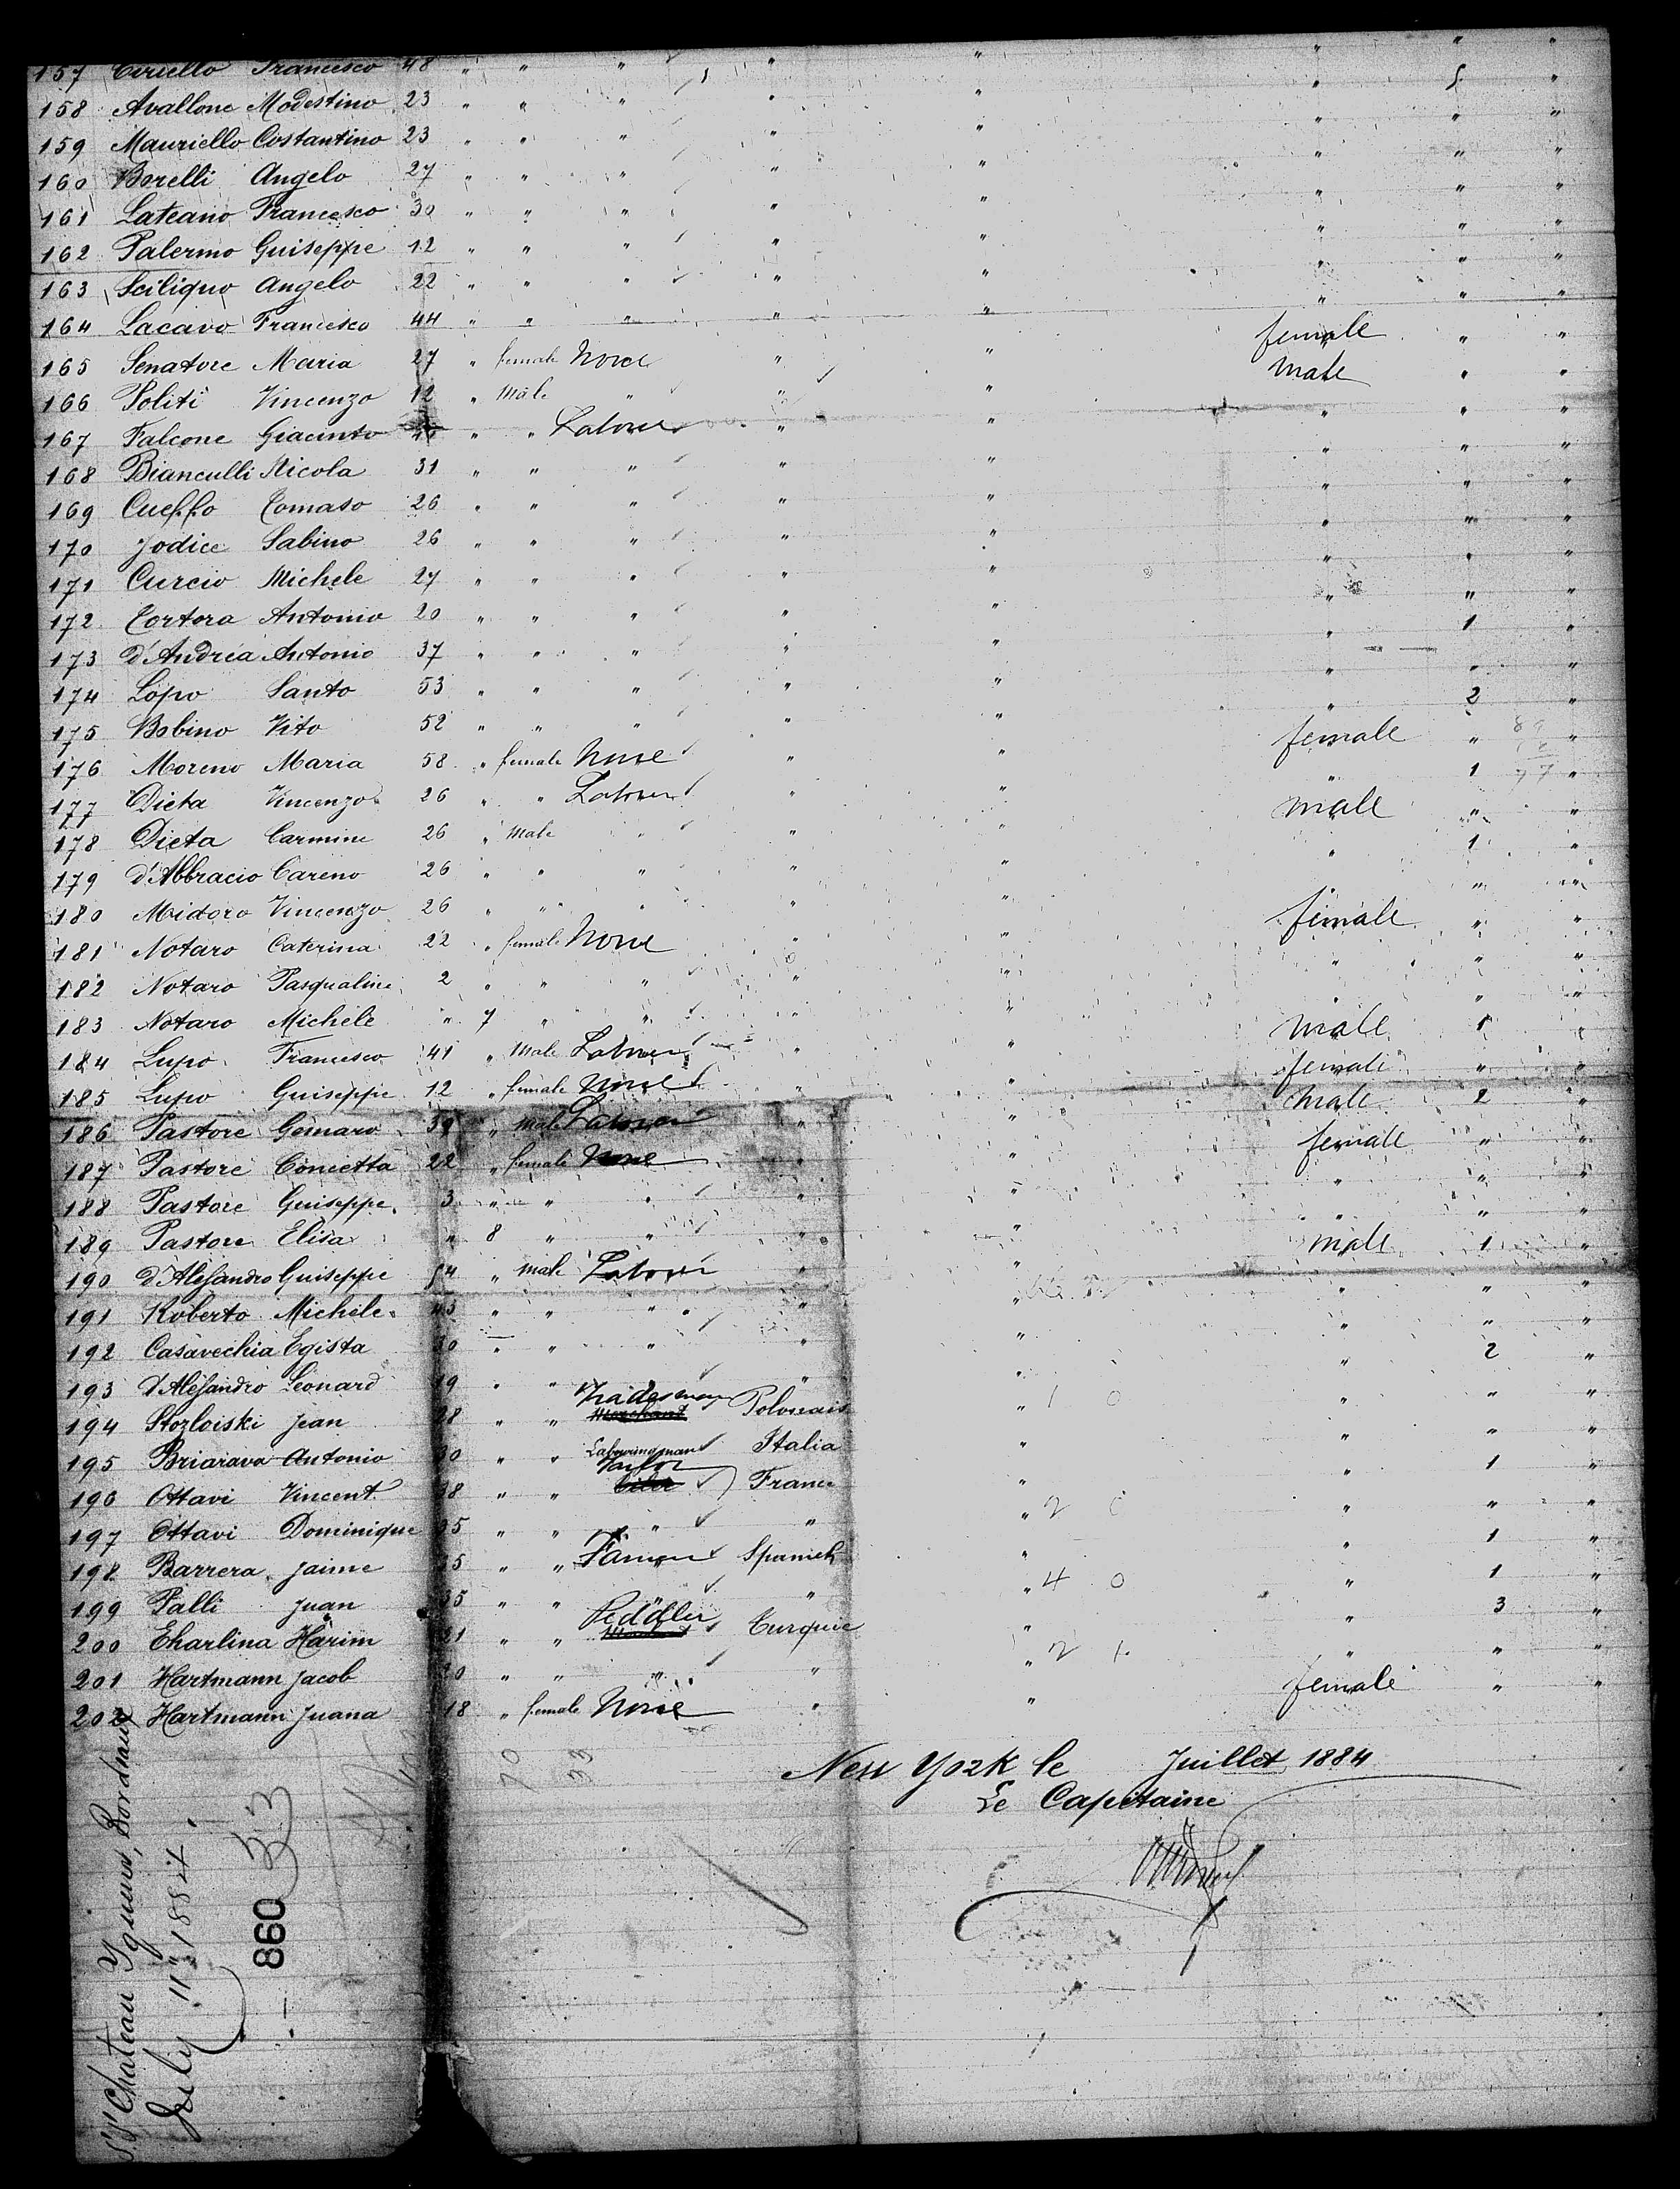 157 Ciriello Francesco 48 " " " " " " " "
158 Avallone Modestino 23 " " " " " " 5 "
159 Mauriello Costantino 23 " " " " " " " "
160 Borelli Angelo 27 " " " " " " " "
161 Lateano Francesco 30 " " " " " " " "
162 Palermo Guiseppe 12 " " " " " " " "
163 Sciliquo Angelo 22 " " " " " " " "
164 Lacavo Francesco 44 " " " " " " " "
165 Senatore Maria 27 " female None " " female " "
166 Politi Vincenzo 12 " Male " " " Male " "
167 Falcone Giacinto " " Labourer " " " " "
168 Bianculli Nicola 31 " " " " " " " "
169 Cueffo Tomaso 26 " " " " " " " "
170 Jodice Sabino 26 " " " " " " " "
171 Curcio Michele 27 " " " " " " " "
172 Tortora Antonio 20 " " " " " " " "
173 d'Andrea Antonio 37 " " " " " " 1 "
174 Lopo Santo 53 " " " " " " " "
175 Bobino Vito 52 " " " " " " 2 "
176 Moreno Maria 58 " female None " " female " "
177 Dieta Vincenzo 26 " " Labourer " " " 1 "
178 Dieta Carmine 26 " Male " " " male " "
179 d'Abbracio Careno 26 " " " " " " 1 "
180 Midoro Vincenzo 26 " " " " " " " "
181 Notaro Caterina 22 " female None " " female " "
182 Notaro Pasqualine 2 " " " " " " " "
183 Notaro Michele " 7 " " " " " " "
184 Lupo Francesco 41 " Male Labourer " " male 1 "
185 Lupo Guiseppe 12 " female None " " female " "
186 Pastore Gemaro 39 " Male Labourer " " male 2 "
187 Pastore Concetta 22 " female None " " female " "
188 Pastore Guiseppe 3 " " " " " " " "
189 Pastore Elisa " 8 " " " " " " "
190 d'Alesandro Guiseppe 54 " male Labourer " " male 1 "
191 Roberto Michele 43 " " " " " " " "
192 Casavechia Egista 30 " " " " " " " "
193 d'Alesandro Leonard 19 " " " " " " 2 "
194 Stozloiski Jean 28 " " Tradesman Merchant Polonais " " " "
195 Briarava Antonio 30 " " Labouringman Italia " " " "
196 Ottavi Vincent 38 " " Taylor France " " 1 "
197 Ottavi Dominique 35 " " " " " " " "
198 Barrera Jaime 35 " " Farmer Spanich " " 1 "
199 Palli Juan 35 " " " " " " 1 "
200 Eharlina Harim 21 " " Peddler Turquie " " 3 "
201 Hartmann Jacob 20 " " " " " " " "
202 Hartmann Juana 18 " female None " " female " "
New York le Juillet 1884
Le Capitaine
S/S Chateau Yquem, Bordeaux
July 11" 1884
860